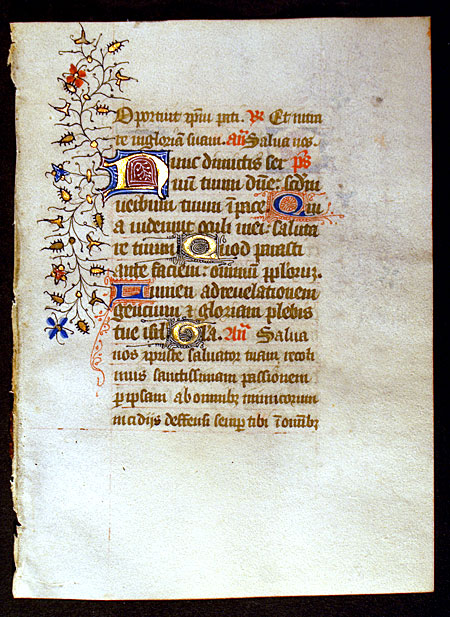 Oportuit xpm pati. V. Et intra
re in gloriam suam. An Salua nos.
Nunc dimittis ser ps
uum tuum dne: scdm
uerbum tuum i pace Qui
a uiderunt oculi mei: saluta
re tuum Quod parasti
ante faciem: omnium pplorum.
Lumen ad reuelationem
gencium & gloriam plebis
tue isrl Gla. An Salua
nos xpriste saluator tuam
mus sanctissimam passionem
per ipsam ab omnibz inimicorum
incidijs deffensi semper tibi i omnibz